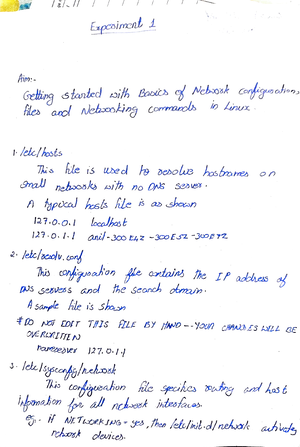 Experiment 1
Aim:-
Getting started with Basics of Network configurations,
files and Networking commands in Linux.
1. /etc/hosts
This file is used to resolve hostnames on
small networks with no DNS server.
A typical hosts file is as shown
127.0.0.1 localhost
127.0.1.1 anil-300E4Z-300E5Z-300E7Z
2. /etc/resolv.conf
This configuration file contains the IP address of
DNS servers and the search domain.
A sample file is shown
# DO NOT EDIT THIS FILE BY HAND -- YOUR CHANGES WILL BE
OVERWRITTEN
nameserver 127.0.1.1
3. /etc/sysconfig/network
This configuration file specifies routing and host
information for all network interfaces.
eg. if NETWORKING = yes, Then /etc/init.d/network activates
network devices.